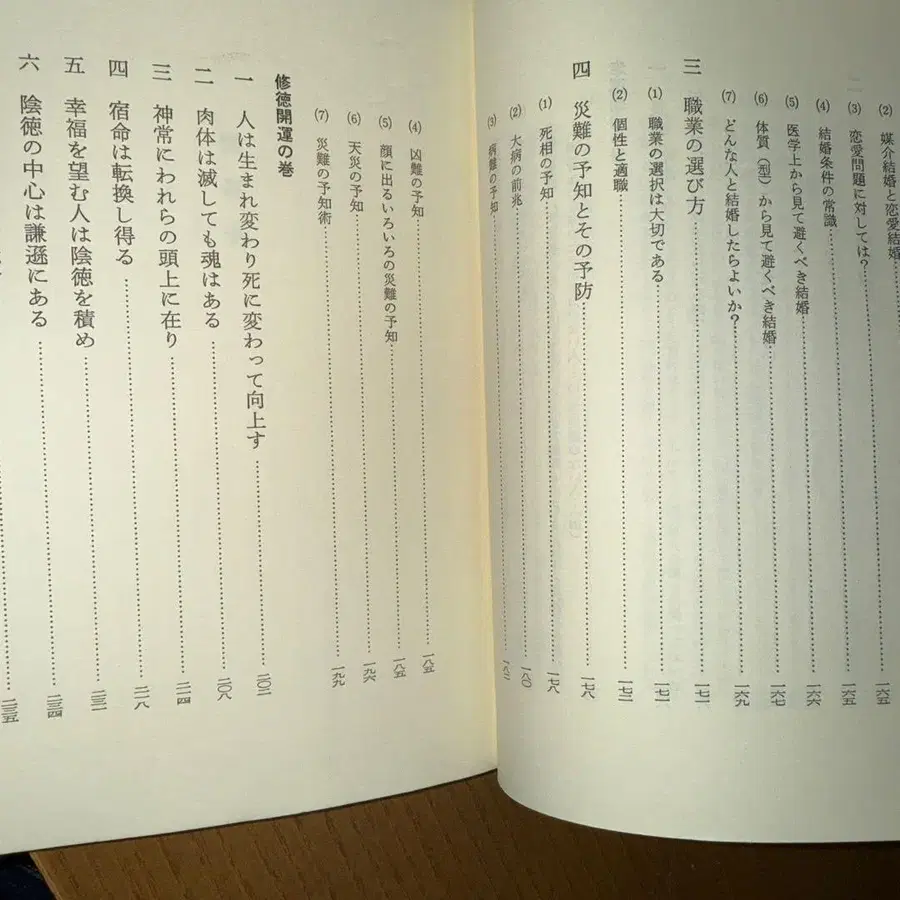 (2) 媒介結婚と恋愛結婚……一六五
(3) 恋愛問題に対しては?……一六五
(4) 結婚条件の常識……一六六
(5) 医学上から見て避くべき結婚……一六六
(6) 体質(型)から見て避くべき結婚……一六七
(7) どんな人と結婚したらよいか?……一六九
三 職業の選び方……一七一
(1) 職業の選択は大切である……一七一
(2) 個性と適職……一七二
四 災難の予知とその予防……一七八
(1) 死相の予知……一七八
(2) 大病の前兆……一八〇
(3) 病難の予知……一八二
(4) 凶難の予知……一八五
(5) 顔に出るいろいろの災難の予知……一八五
(6) 天災の予知……一九六
(7) 災難の予知術……一九九
修徳開運の巻
一 人は生まれ変わり死に変わって向上す……二〇二
二 肉体は滅しても魂はある……二〇八
三 神常にわれらの頭上に在り……二一四
四 宿命は転換し得る……二一八
五 幸福を望む人は陰徳を積め……二三二
六 陰徳の中心は謙遜にある……二三四
……二三五